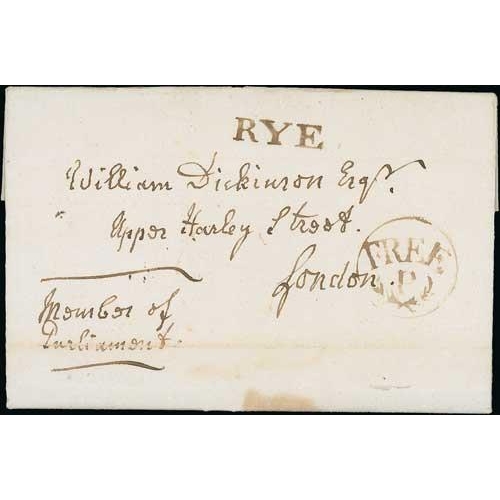 RYE
William Dickinson Esqr.
Upper Harley Street.
London.
FREE
P
Member of
Parliament.